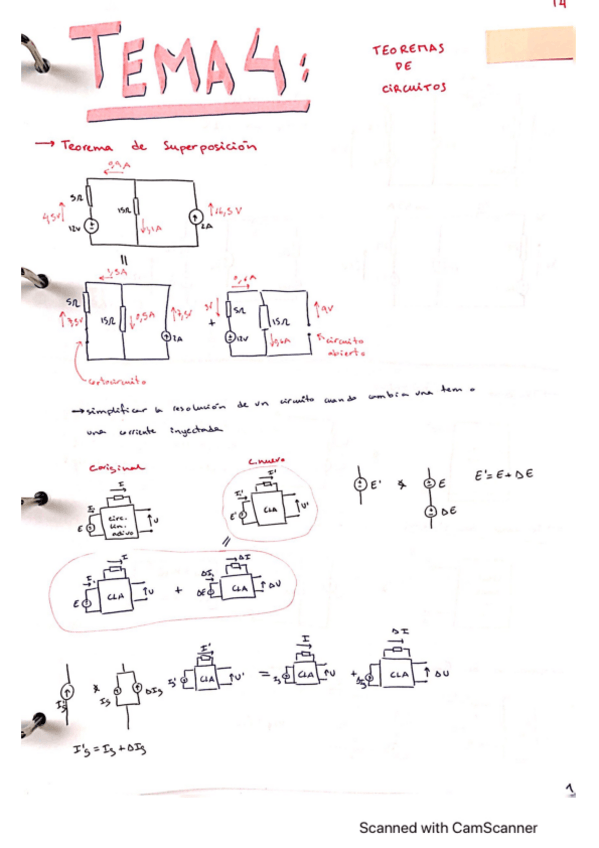 TEMA 4:
TEOREMAS
DE
CIRCUITOS
→ Teorema de Superposición
0,9A
5Ω
15Ω
4,5V
12V
1,1A
16,5V
2A
=
1,5A
5Ω
7,5V
15Ω
0,5A
7,5V
2A
+
0,6A
5Ω
12V
15Ω
0,6A
9V
circuito
abierto
cortocircuito
→ simplificar la resolución de un circuito cuando cambia una tem o
una corriente inyectada
C.original
C.nuevo
I
circ.
lin.
activo
E
U
I'
E'
CLA
U'
=
E'
E
ΔE
E'=E+ΔE
I
E
CLA
U
+
ΔI
ΔE
CLA
ΔU
I's
Is
ΔIs
I'
I's
CLA
U'
=
I
Is
CLA
U
+
ΔI
CLA
ΔU
I's = Is + ΔIs
1
Scanned with CamScanner